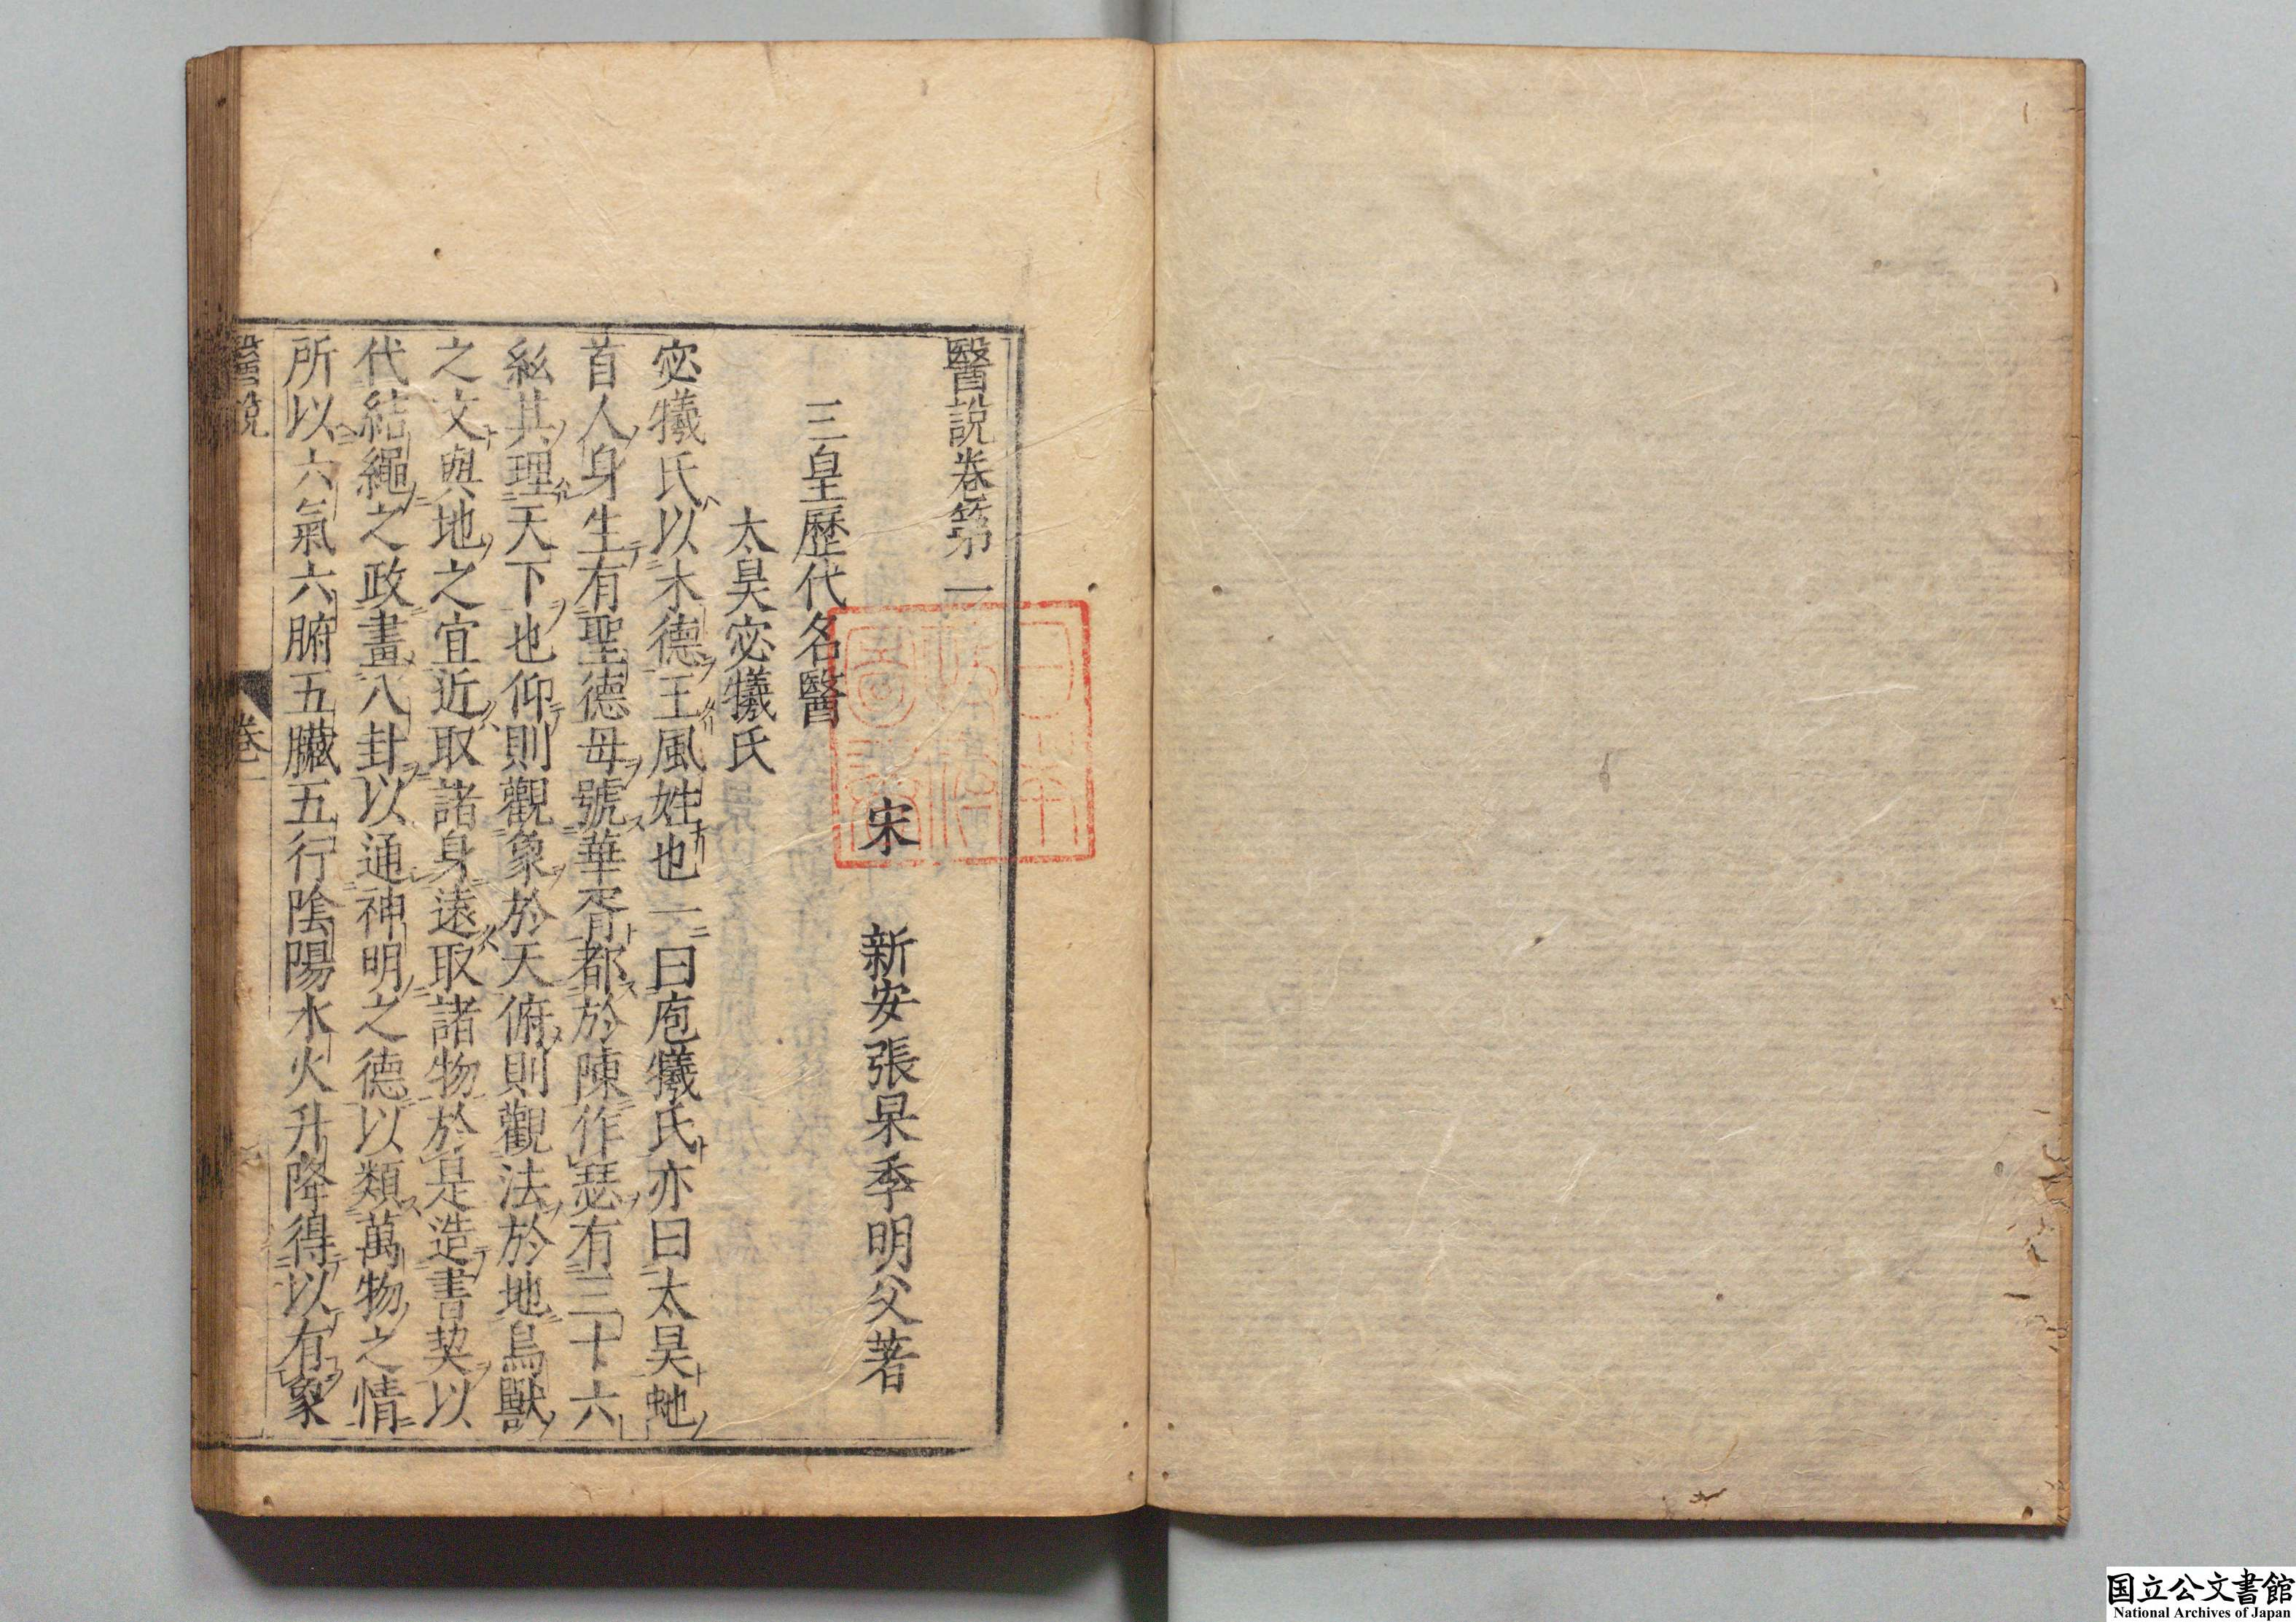 醫說卷第一
宋　新安張杲季明父著
三皇歷代名醫
太昊宓犧氏
宓犧氏以木德王風姓也一曰庖犧氏亦曰太昊虵
首人身生有聖德母號華胥都於陳作瑟有三十六
絃其理天下也仰則觀象於天俯則觀法於地鳥獸
之文與地之宜近取諸身遠取諸物於是造書契以
代結繩之政畫八卦以通神明之德以類萬物之情
所以六氣六腑五臟五行陰陽水火升降得以有象
醫說　卷一
国立公文書館
National Archives of Japan